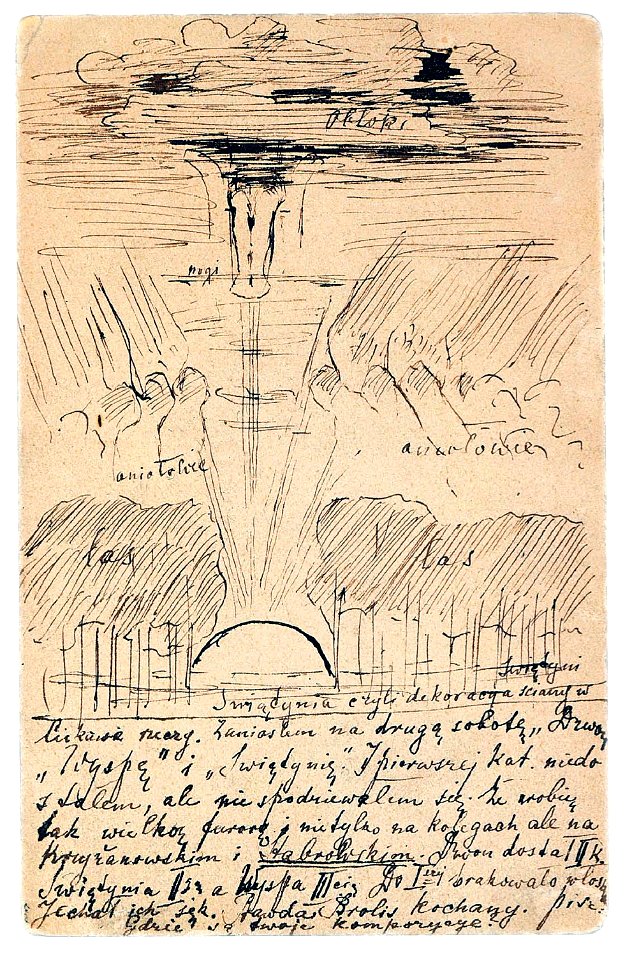 Obłoki
nogi
aniołowie
aniołowie
las
las
Świątyni
Świątynia czyli dekoracya ściany w
Ciekawe rzeczy. Zaniosłem na drugą sobotę „Dzwon”
„Wyspę” i „Świątynię”. I pierwszej kat. niedo
stałem, ale nie spodziewałem się. Że zrobię
tak wielką furorę i nietylko na kolegach ale na
Krzyżanowskim i Dąbrowskim. Dzwon dostał II k.
Świątynia II gą a Wyspa III cią Do I szej brakowało włosk
Jechał ich sęk. Brolis kochany. pisz:
gdzie są twoje kompozycye?